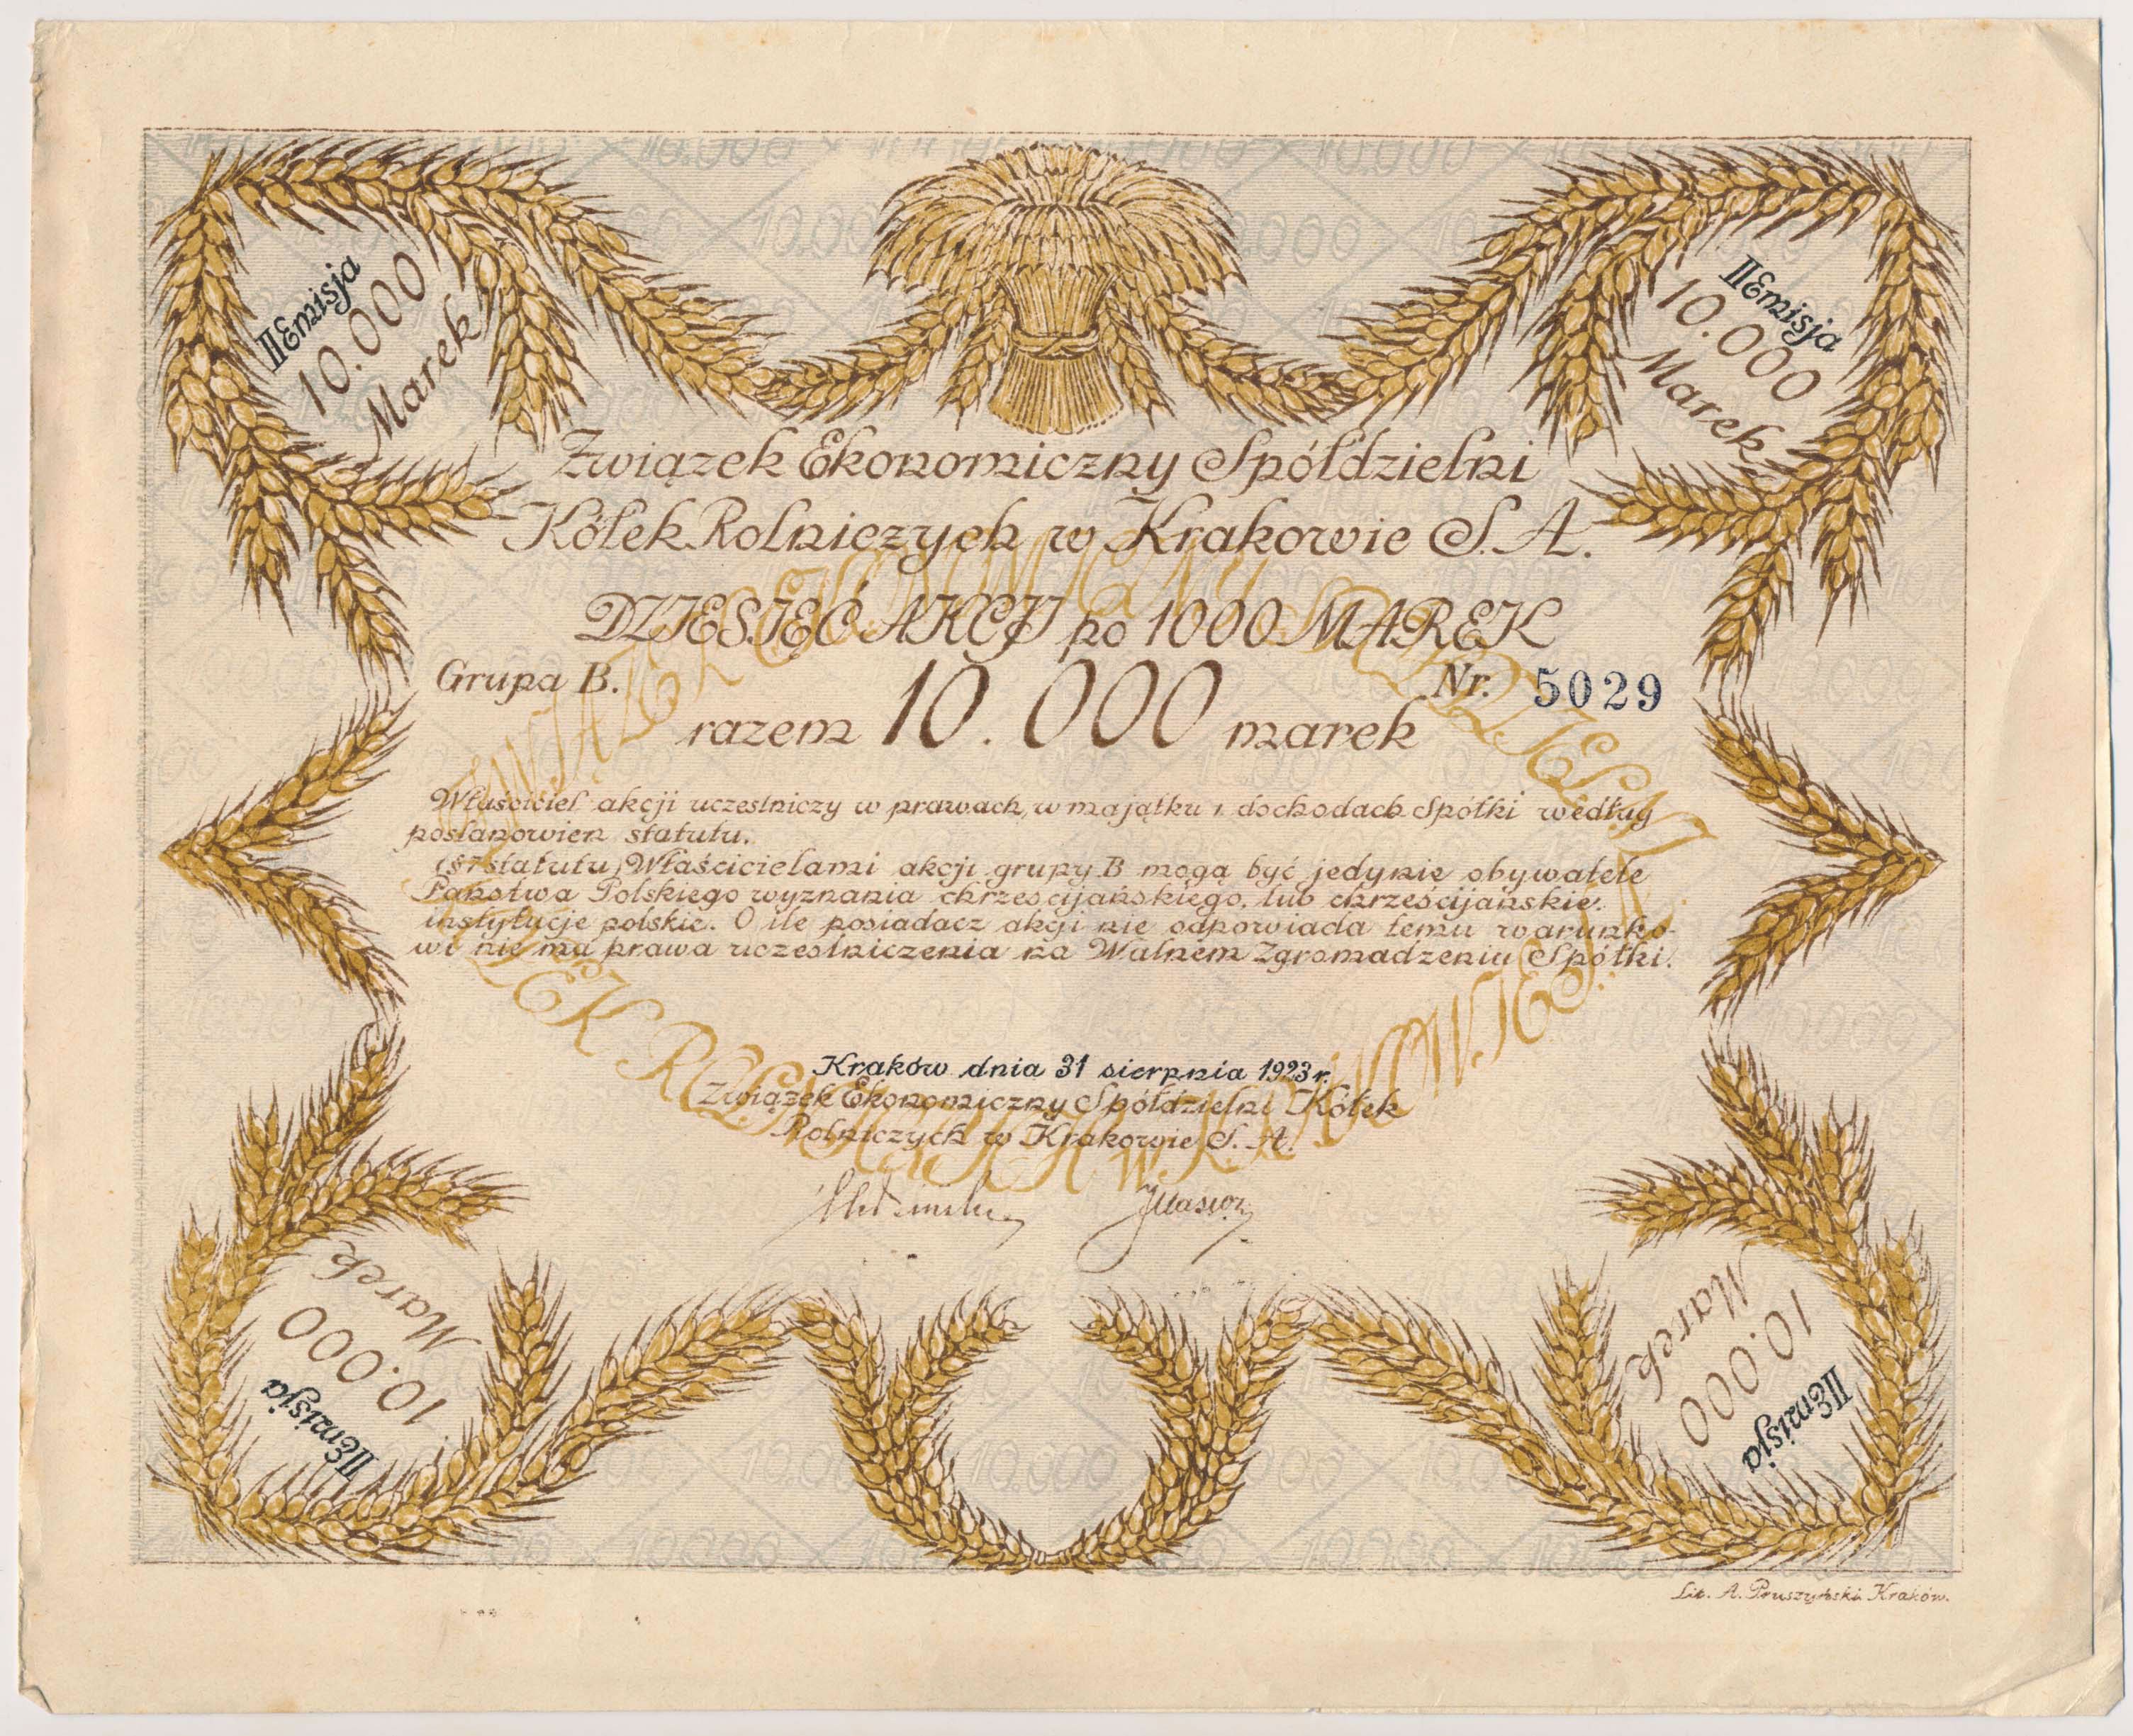 II Emisja
10.000
Marek
II Emisja
10.000
Marek
Związek Ekonomiczny Spółdzielni
Kółek Rolniczych w Krakowie S. A.
DZIESIĘĆ AKCJI po 1000 MAREK
Grupa B.
Nr. 5029
razem 10.000 marek
Właściciel akcji uczestniczy w prawach, w majątku i dochodach Spółki według
postanowien statutu.
(§ 7 statutu) Właścicielami akcji grupy B mogą być jedynie obywatele
Państwa Polskiego wyznania chrześcijańskiego, lub chrześcijańskie
instytucje polskie. O ile posiadacz akcji nie odpowiada temu warunko-
wi nie ma prawa uczestniczenia na Walnem Zgromadzeniu Spółki.
ZWIĄZEK EKONOMICZNY SPÓŁDZIELNI
KÓŁEK ROLNICZYCH W KRAKOWIE S. A.
Kraków dnia 31 sierpnia 1923 r.
Związek Ekonomiczny Spółdzielni Kółek
Rolniczych w Krakowie S. A.
Marek
10.000
II Emisja
Marek
10.000
II Emisja
Lit. A. Pruszyński Kraków.